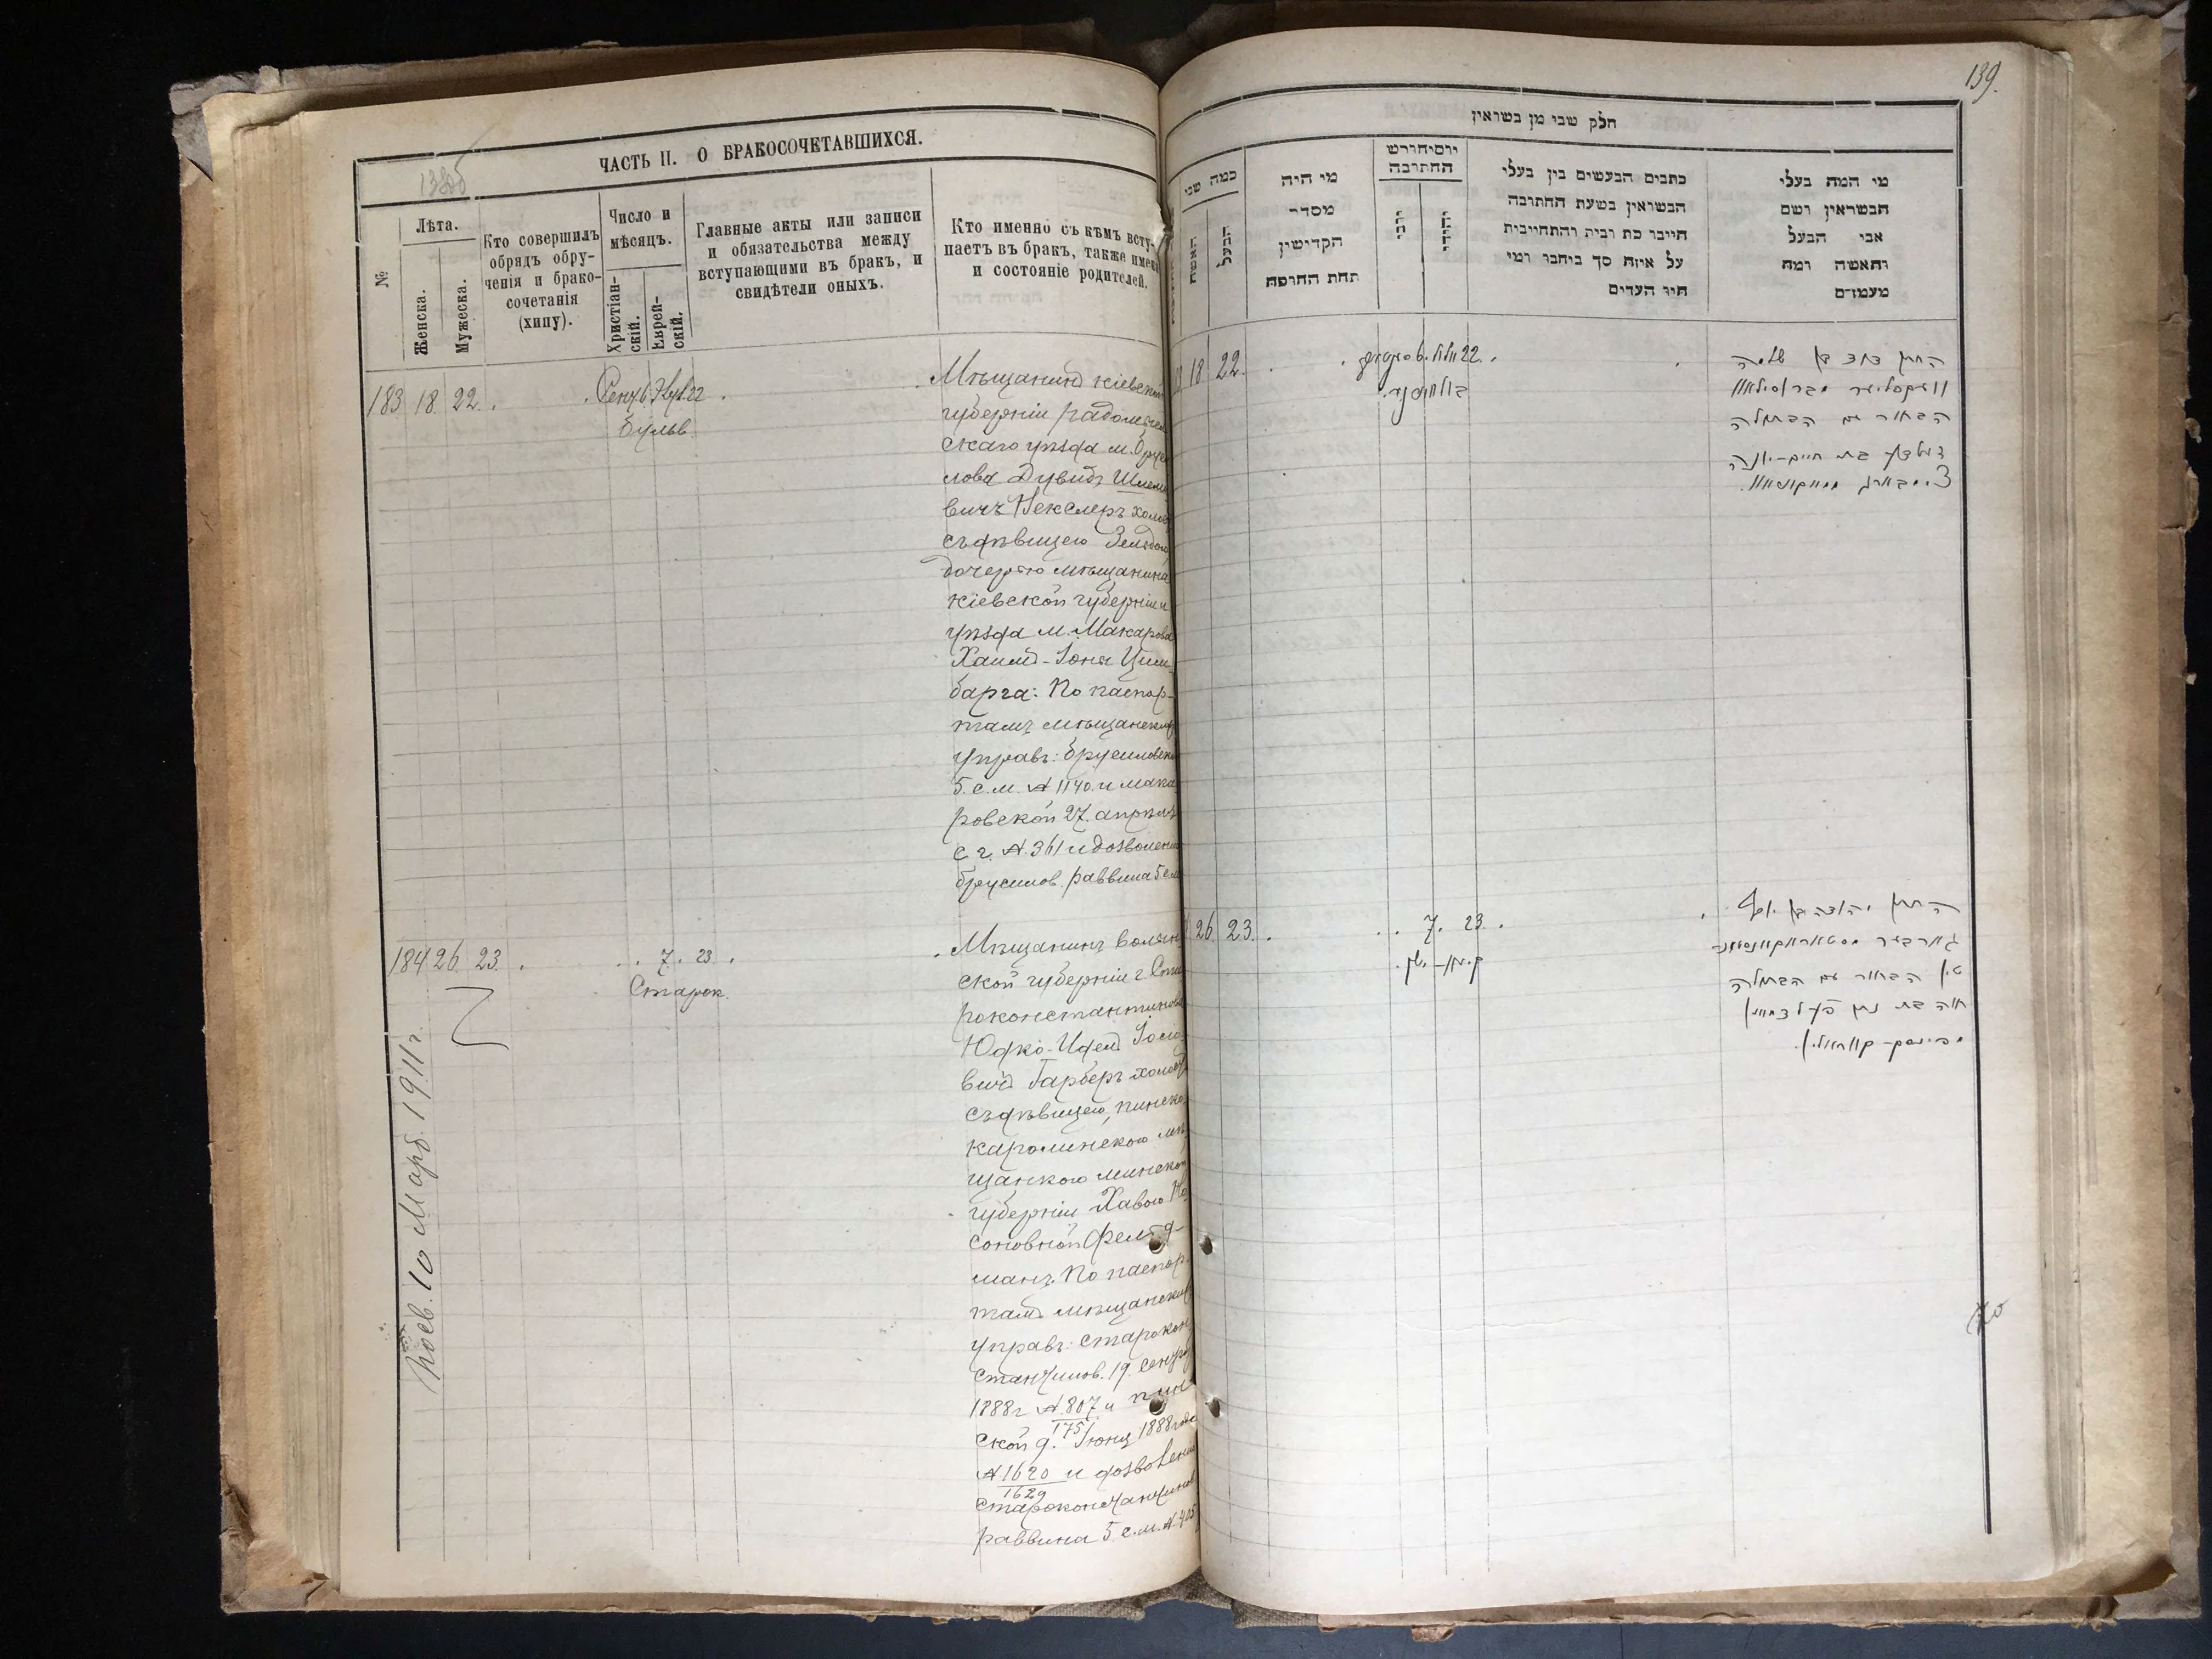 ЧАСТЬ II. О БРАКОСОЧЕТАВШИХСЯ.
№
Лѣта.
Женска.
Мужеска.
Кто совершилъ
обрядъ обру-
ченія и брако-
сочетанія
(хипу).
Число и
мѣсяцъ.
Христіан-
скій.
Еврей-
скій.
Главные акты или записи
и обязательства между
вступающими въ бракъ, и
свидѣтели оныхъ.
Кто именно съ кѣмъ всту-
паетъ въ бракъ, также имена
и состояніе родителей.
183 18 22
22
бульв.
Мѣщанинъ кіевской
губерніи радомысль
скаго уѣзда м. Бруси
лова Дувидъ Шлемо
вичъ Векслеръ холос
съ дѣвицею
дочерью мѣщанина
кіевской губерніи и
уѣзда м. Макарова
Хаимъ-Іона Цим
барга: По паспор-
тамъ мѣщанскихъ
управъ: брусиловской
5. с. м. № 1140. и мака
ровской 27. апрѣля
с. г. № 361 и дозволенію
брусилов. раввина 5 с.м
184 26 23
7. 23
Старок.
Мѣщанинъ волын
ской губерніи г. Ста
роконстантинова
Юдко-Идель Іосіо
вичъ Гарберъ холост
съ дѣвицею, пинско
каролинскою мѣ
щанкою минской
губерніи Хавою Но
соновной Фельд-
манъ. По паспор
тамъ мѣщанскихъ
управъ: старокон
стантинов. 19. сентяб
1888 г № 807. и пин
1751
ской 9. Іюня 1888 года
№ 1620 и дозволенію
1629
староконстантинов
раввина 5. с. м. № 405
10 1911 г.
139.
חלק שני מן נשואין
כמה שני
האשה
הבעל
מי היה
מסדר
הקדישין
תחת החופה
יום וחודש
החתונה
כתבים הנעשים בין בעלי
הנשואין בשעת החתונה
חייבו כת ובית והתחייבות
על איזה סך ביחבו ומי
היו העדים
מי המה בעלי
הנשואין ושם
אבי הבעל
והאשה ומה
מעמדם
18 22.
22 אלול 6
החתן דוד בן שלמה
וועקסלער מברוסילאוו
הבחור עם הבתולה
זעלדע בת חיים-יונה
צימבארג ממאקאראוו.
26 23.
7. 23
החתן יהודה בן יוסף
גארבער מסטאראקאנסטאנ-
טין הבחור עם הבתולה
חוה בת נתן פעלדמאן
מפינסק-קאראלין.